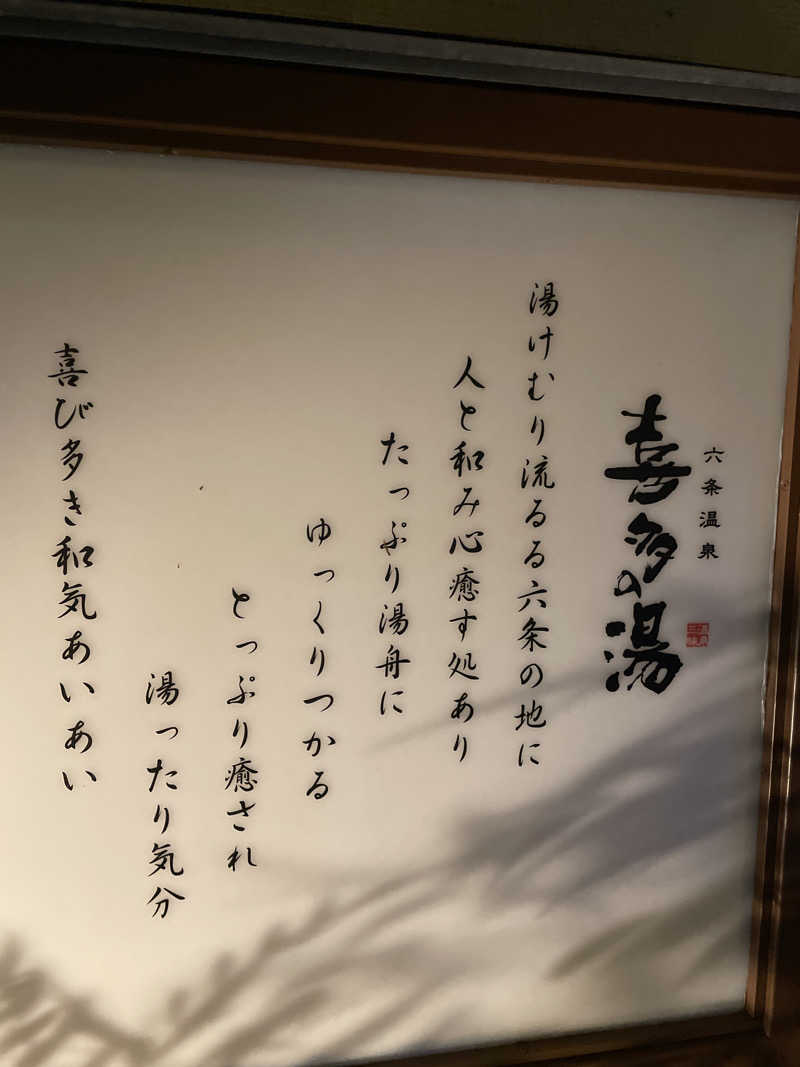 六条温泉
喜多の湯
湯けむり流るる六条の地に
人と和み心癒す処あり
たっぷり湯舟に
ゆっくりつかる
とっぷり癒され
湯ったり気分
喜び多き和気あいあい